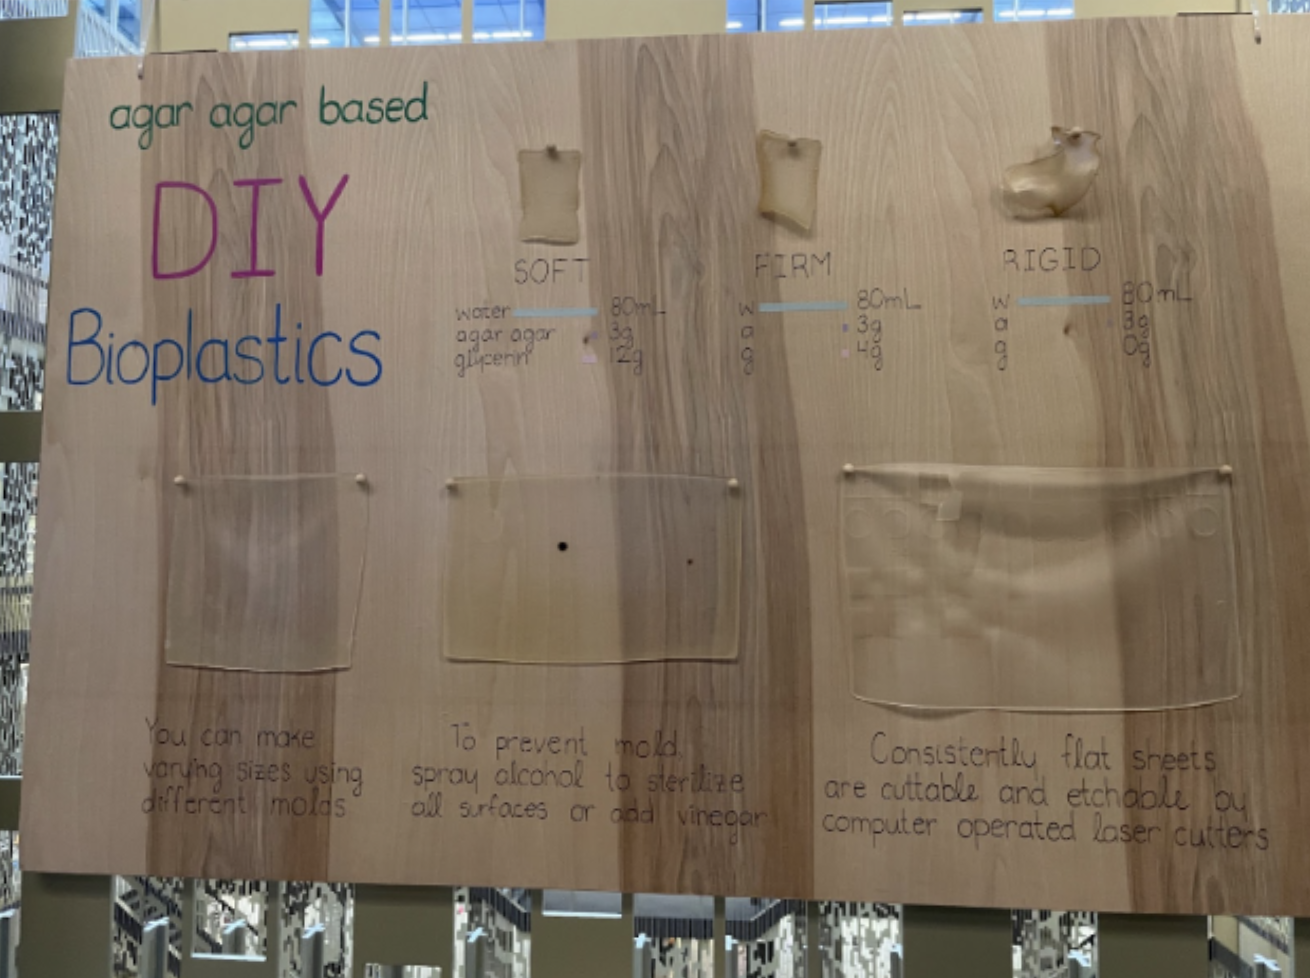 agar agar based
DIY
Bioplastics
SOFT
water 80mL
agar agar 3g
glycerin 12g
FIRM
w 80mL
a 3g
g 4g
RIGID
w 80mL
a 3g
g 0g
You can make
varying sizes using
different molds
To prevent mold,
spray alcohol to sterilize
all surfaces or add vinegar
Consistently flat sheets
are cuttable and etchable by
computer operated laser cutters